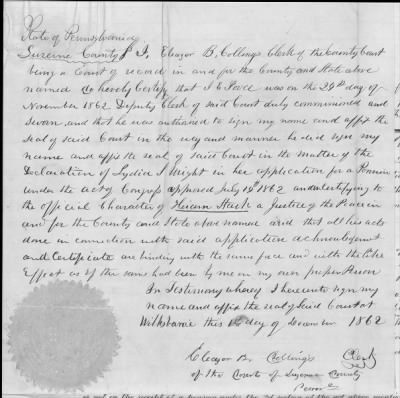 State of Pennsylvania
Luzerne County } I, Eleazor B. Collings Clerk of the County Court
being a Court of record in and for the County and State above
named Do hereby Certify that J. E. was on the 24th day of
November 1862 Deputy Clerk of said Court duly commissioned and
sworn, and that he was authorised to sign my name and affix the
seal of said Court in the way and manner he did sign my
name and affix the seal of said Court in the matter of the
Declaration of Lydia in her application for a Pension
under the act of Congress approved July 14th 1862 and certifying to
the official Character of Hiram Stark a Justice of the Peace in
and for the County and State afore named and that all his acts
done in connection with said application acknowledgment
and Certificate are binding with the same force and with the like
Effect as if the same had been by me in my own proper Person
In Testimony whereof I hereunto sign my
name and affix the seal of said Court at
Wilkesbarre this day of December 1862
Eleazor B. Collings Clerk
of the Courts of Luzerne County
Penna